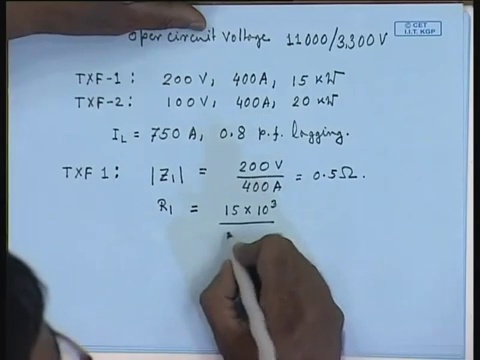 Open circuit Voltage 11000/3,300 V
© CET
I.I.T. KGP
TXF-1: 200 V, 400A, 15 kW
TXF-2: 100 V, 400A, 20 kW
I_L = 750 A, 0.8 p.f. lagging.
TXF 1: |Z_1| = 200 V / 400 A = 0.5Ω.
R_1 = 15 × 10^3